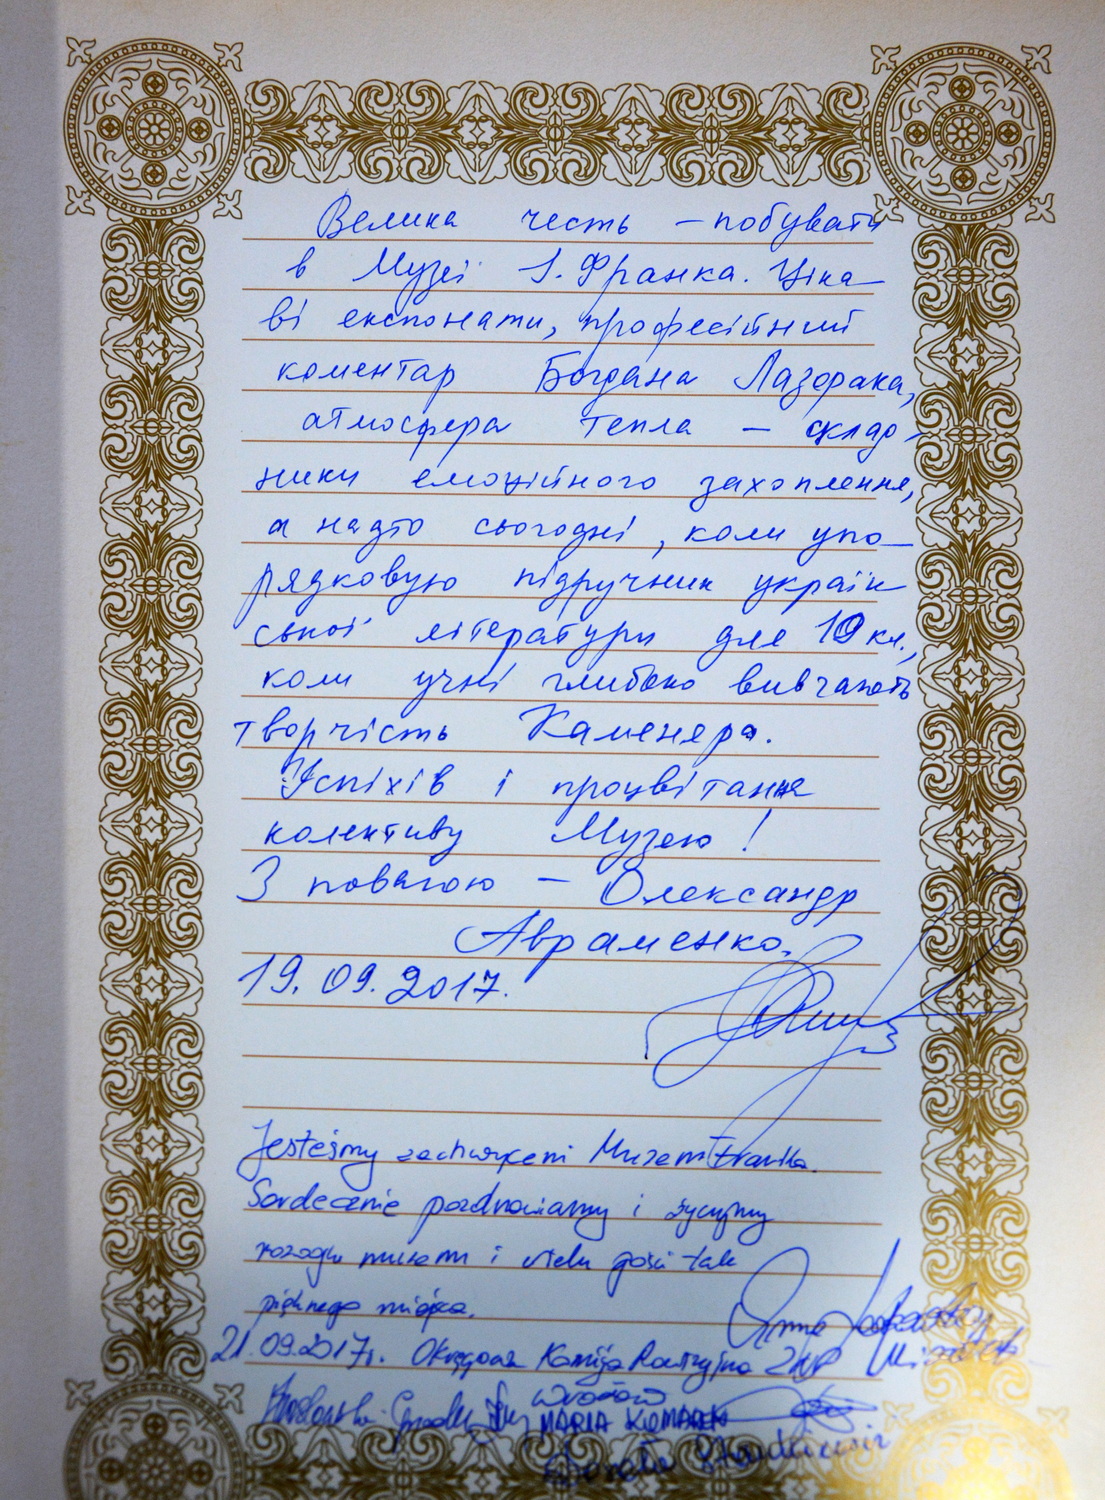 Велика честь – побувати
в Музеї І. Франка. Ціка
ві експонати, професійний
коментар Богдана Лазорака,
атмосфера тепла – склад-
ники емоційного захоплення,
а надто сьогодні, коли упо-
рядковую підручник україн
ської літератури для 10 кл.,
коли учні глибоко вивчають
творчість Каменяра.
Успіхів і процвітання
колективу Музею!
З повагою – Олександр
Авраменко.
19.09.2017.
Jesteśmy zachwyceni Muzeum Franka.
Serdecznie pozdrawiamy i życzymy
rozwoju muzeum i wielu gości tak
pięknego miejsca.
21.09.2017r. Okręgowa Komisja Rewizyjna ZNP
Wrocław
MARIA KOMAREK